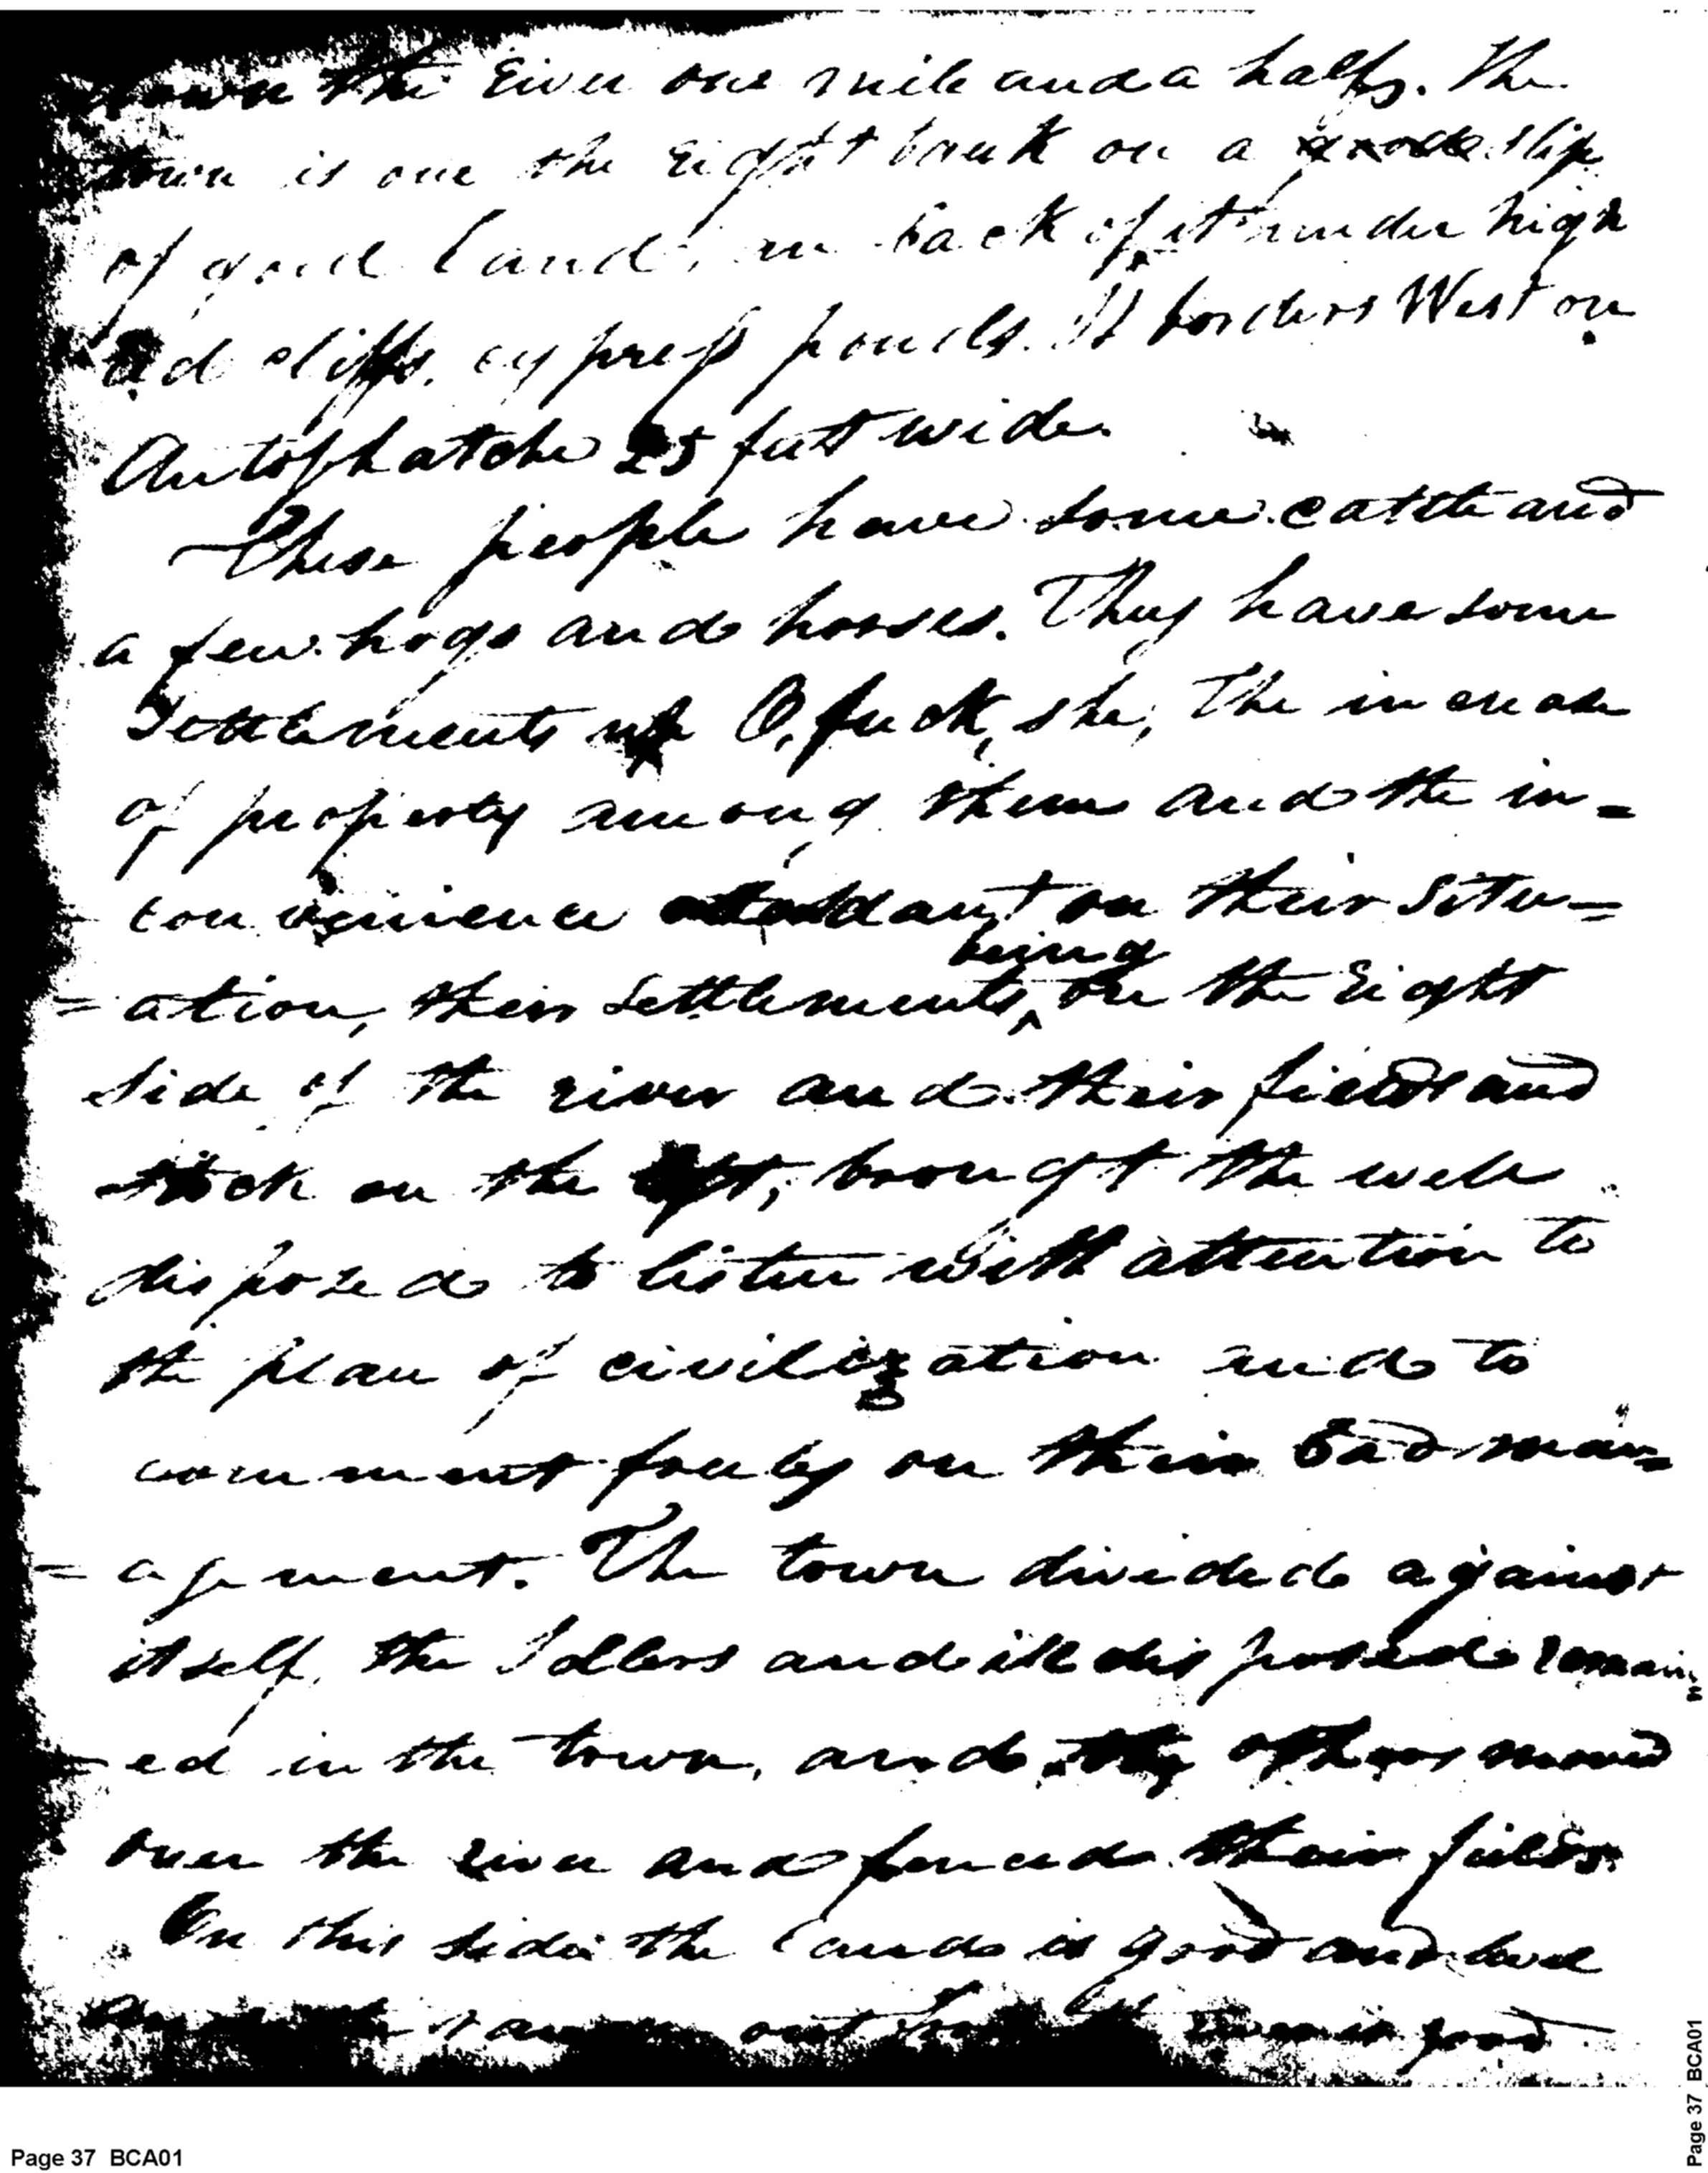 down the river one mile and a half. The
town is one the right bank on a slip
of good land, in back of it under high
red cliffs, cypress ponds. It borders West on
Autophatche 25 feet wide.
These people have some cattle and
a few hogs and horses. They have some
settlements up O,fuck,she; The increase
of property among them and the in=
convenience attendant on their situ=
=ation, their settlements, being on the right
side of the river and their fields and
stock on the left, brought the well
disposed to listen with attention to
the plan of civilization and to
comment freely on their bad man=
=agement. The town divided against
itself, the Idlers and ill disposed remain=
=ed in the town, and the others moved
over the river and fenced their fields.
On this side the land is good and level
out good
Page 37 BCA01
Page 37 BCA01